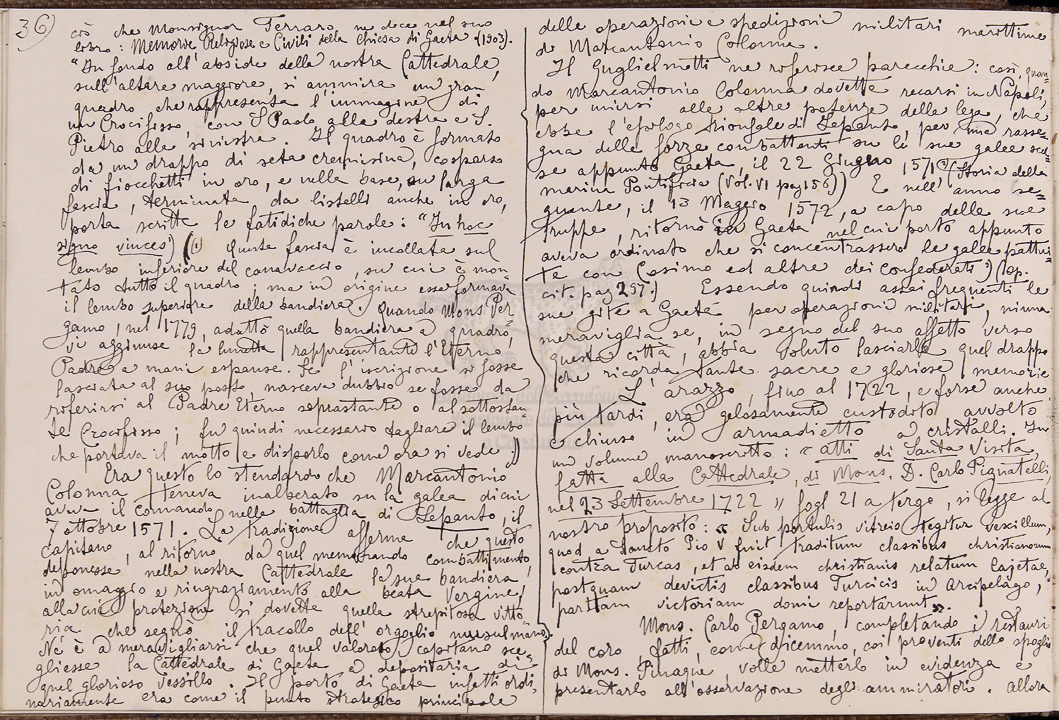 36)
ciò che Monsignor Ferraro ne dice nel suo
libro: Memorie Religiose e Civili della Chiesa di Gaeta (1903).
"In fondo all'abside della nostra Cattedrale,
sull'altare maggiore, si ammira un gran
quadro che rappresenta l'immagine di
un Crocifisso, con S. Paolo alla destra e S.
Pietro alla sinistra. Il quadro è formato
da un drappo di seta cremisina, cosparso
di fiocchetti in oro, e nella base, su larga
fascia, terminata da listelli anche in oro,
porta scritte le fatidiche parole: "In hoc
signo vinces") (1) Questa fascia è incollata sul
lembo inferiore del canavaccio, su cui è mon-
tato tutto il quadro; ma in origine essa formava
il lembo superiore della bandiera. Quando Mons. Per-
gamo, nel 1779, adattò quella bandiera a quadro,
vi aggiunse la lunetta rappresentante l'Eterno
Padre a mani espanse. Se l'iscrizione si fosse
lasciata al suo posto nasceva dubbio se fosse da
riferirsi al Padre Eterno soprastante o al sottostan-
te Crocifisso; fu quindi necessario tagliare il lembo
che portava il motto e disporlo come ora si vede.))
Era questo lo stendardo che Marcantonio
Colonna teneva inalberato su la galea di cui
aveva il comando nella battaglia di Lepanto, il
7 ottobre 1571. La tradizione afferma che questo
capitano, al ritorno da quel memorando combattimento,
deponesse nella nostra Cattedrale la sua bandiera
in omaggio e ringraziamento alla beata Vergine,
alla cui protezione si dovette quella strepitosa vitto-
ria che segnò il tracollo dell'orgoglio musulmano.
Nè è a meravigliarsi che quel valoroso capitano sce-
gliesse la Cattedrale di Gaeta a depositaria di
quel glorioso vessillo. Il porto di Gaeta infatti ordi-
nariamente era come il punto strategico principale
delle operazioni e spedizioni militari marittime
di Marcantonio Colonna.
Il Guglielmotti ne riferisce parecchie: così, quan-
do Marcantonio Colonna dovette recarsi in Napoli,
per unirsi alle altre potenze della lega, che
ebbe l'epilogo trionfale di Lepanto, per una rasse-
gna delle forze combattenti su le sue galee scel-
se appunto Gaeta, il 22 Giugno 1571 (Storia della
marina Pontificia (Vol. VI pag 156)) E nell'anno se-
guente, il 13 Maggio 1572, a capo delle sue
truppe, ritornò in Gaeta nel cui porto appunto
aveva ordinato che si concentrassero le galee pattui-
te con Cosimo ed altre dei confederati) (op.
cit. pag 257.) Essendo quindi assai frequenti le
sue gite a Gaeta per operazioni militari, niuna
meraviglia se, in segno del suo affetto verso
questa città, abbia voluto lasciarle quel drappo
che ricorda tante sacre e gloriose memorie
L'arazzo, fino al 1722, e forse anche
più tardi, era gelosamente custodito, avvolto
e chiuso in armadietto a cristalli. In
un volume manoscritto: « atti di Santa Visita
fatta alla Cattedrale, di Mons. D. Carlo Pignatelli,
nel 23 Settembre 1722 » fogl 21 a tergo, si legge al
nostro proposito: « Sub portulis vitreis tegitur vexillum,
quod a Sancto Pio V fuit traditum classibus christianorum
contra Turcas, et ab eisdem christianis relatum Cajetae,
postquam devictis classibus Turcicis in Arcipelago,
partam victoriam domi reportarunt".
Mons. Carlo Pergamo, completando i restauri
del coro fatti, come dicemmo, coi proventi dello spoglio
di Mons. Pinaque, volle metterlo in evidenza e
presentarlo all'osservazione degli ammiratori. Allora